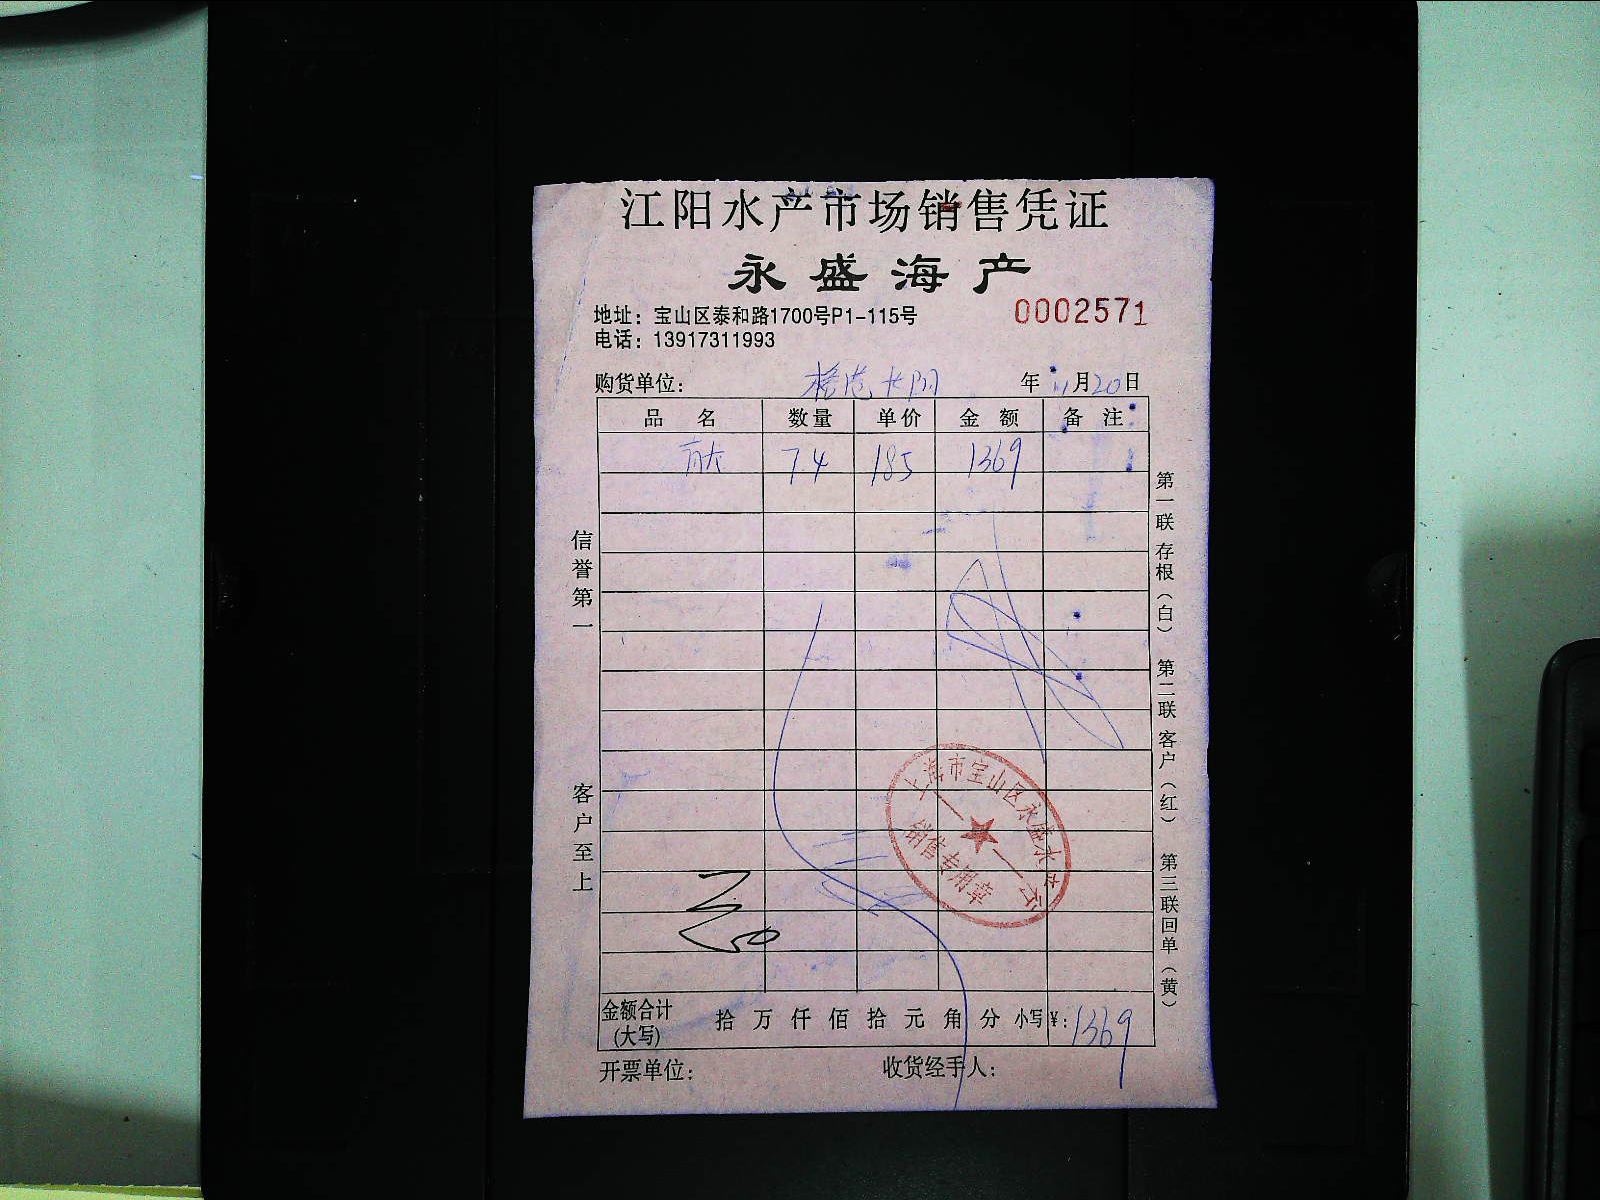 江阳水产市场销售凭证
永盛海产
地址：宝山区泰和路1700号P1-115号
0002571
电话：13917311993
购货单位： 年 11月20日
品名 数量 单价 金额 备注
7.4 185 1369
信誉第一
客户至上
第一联 存根（白） 第二联 客户（红） 第三联 回单（黄）
上海市宝山区永盛水产行
销售专用章
金额合计(大写) 拾 万 仟 佰 拾 元 角 分 小写¥：1369
开票单位： 收货经手人：